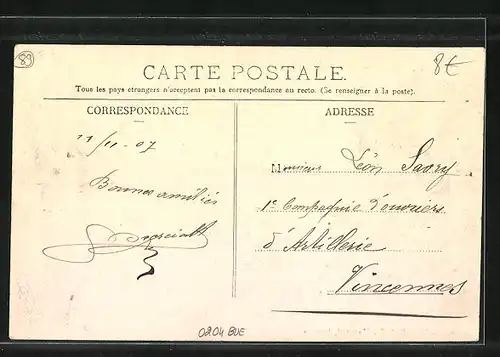 89
8€
CARTE POSTALE.
Tous les pays étrangers n'acceptent pas la correspondance au recto. (Se renseigner à la poste).
CORRESPONDANCE
ADRESSE
11/11-07
Bonnes amitiés
Monsieur Léon Savry
1e Compagnie d'ouvriers
d'Artillerie
Vincennes
0204 BUE